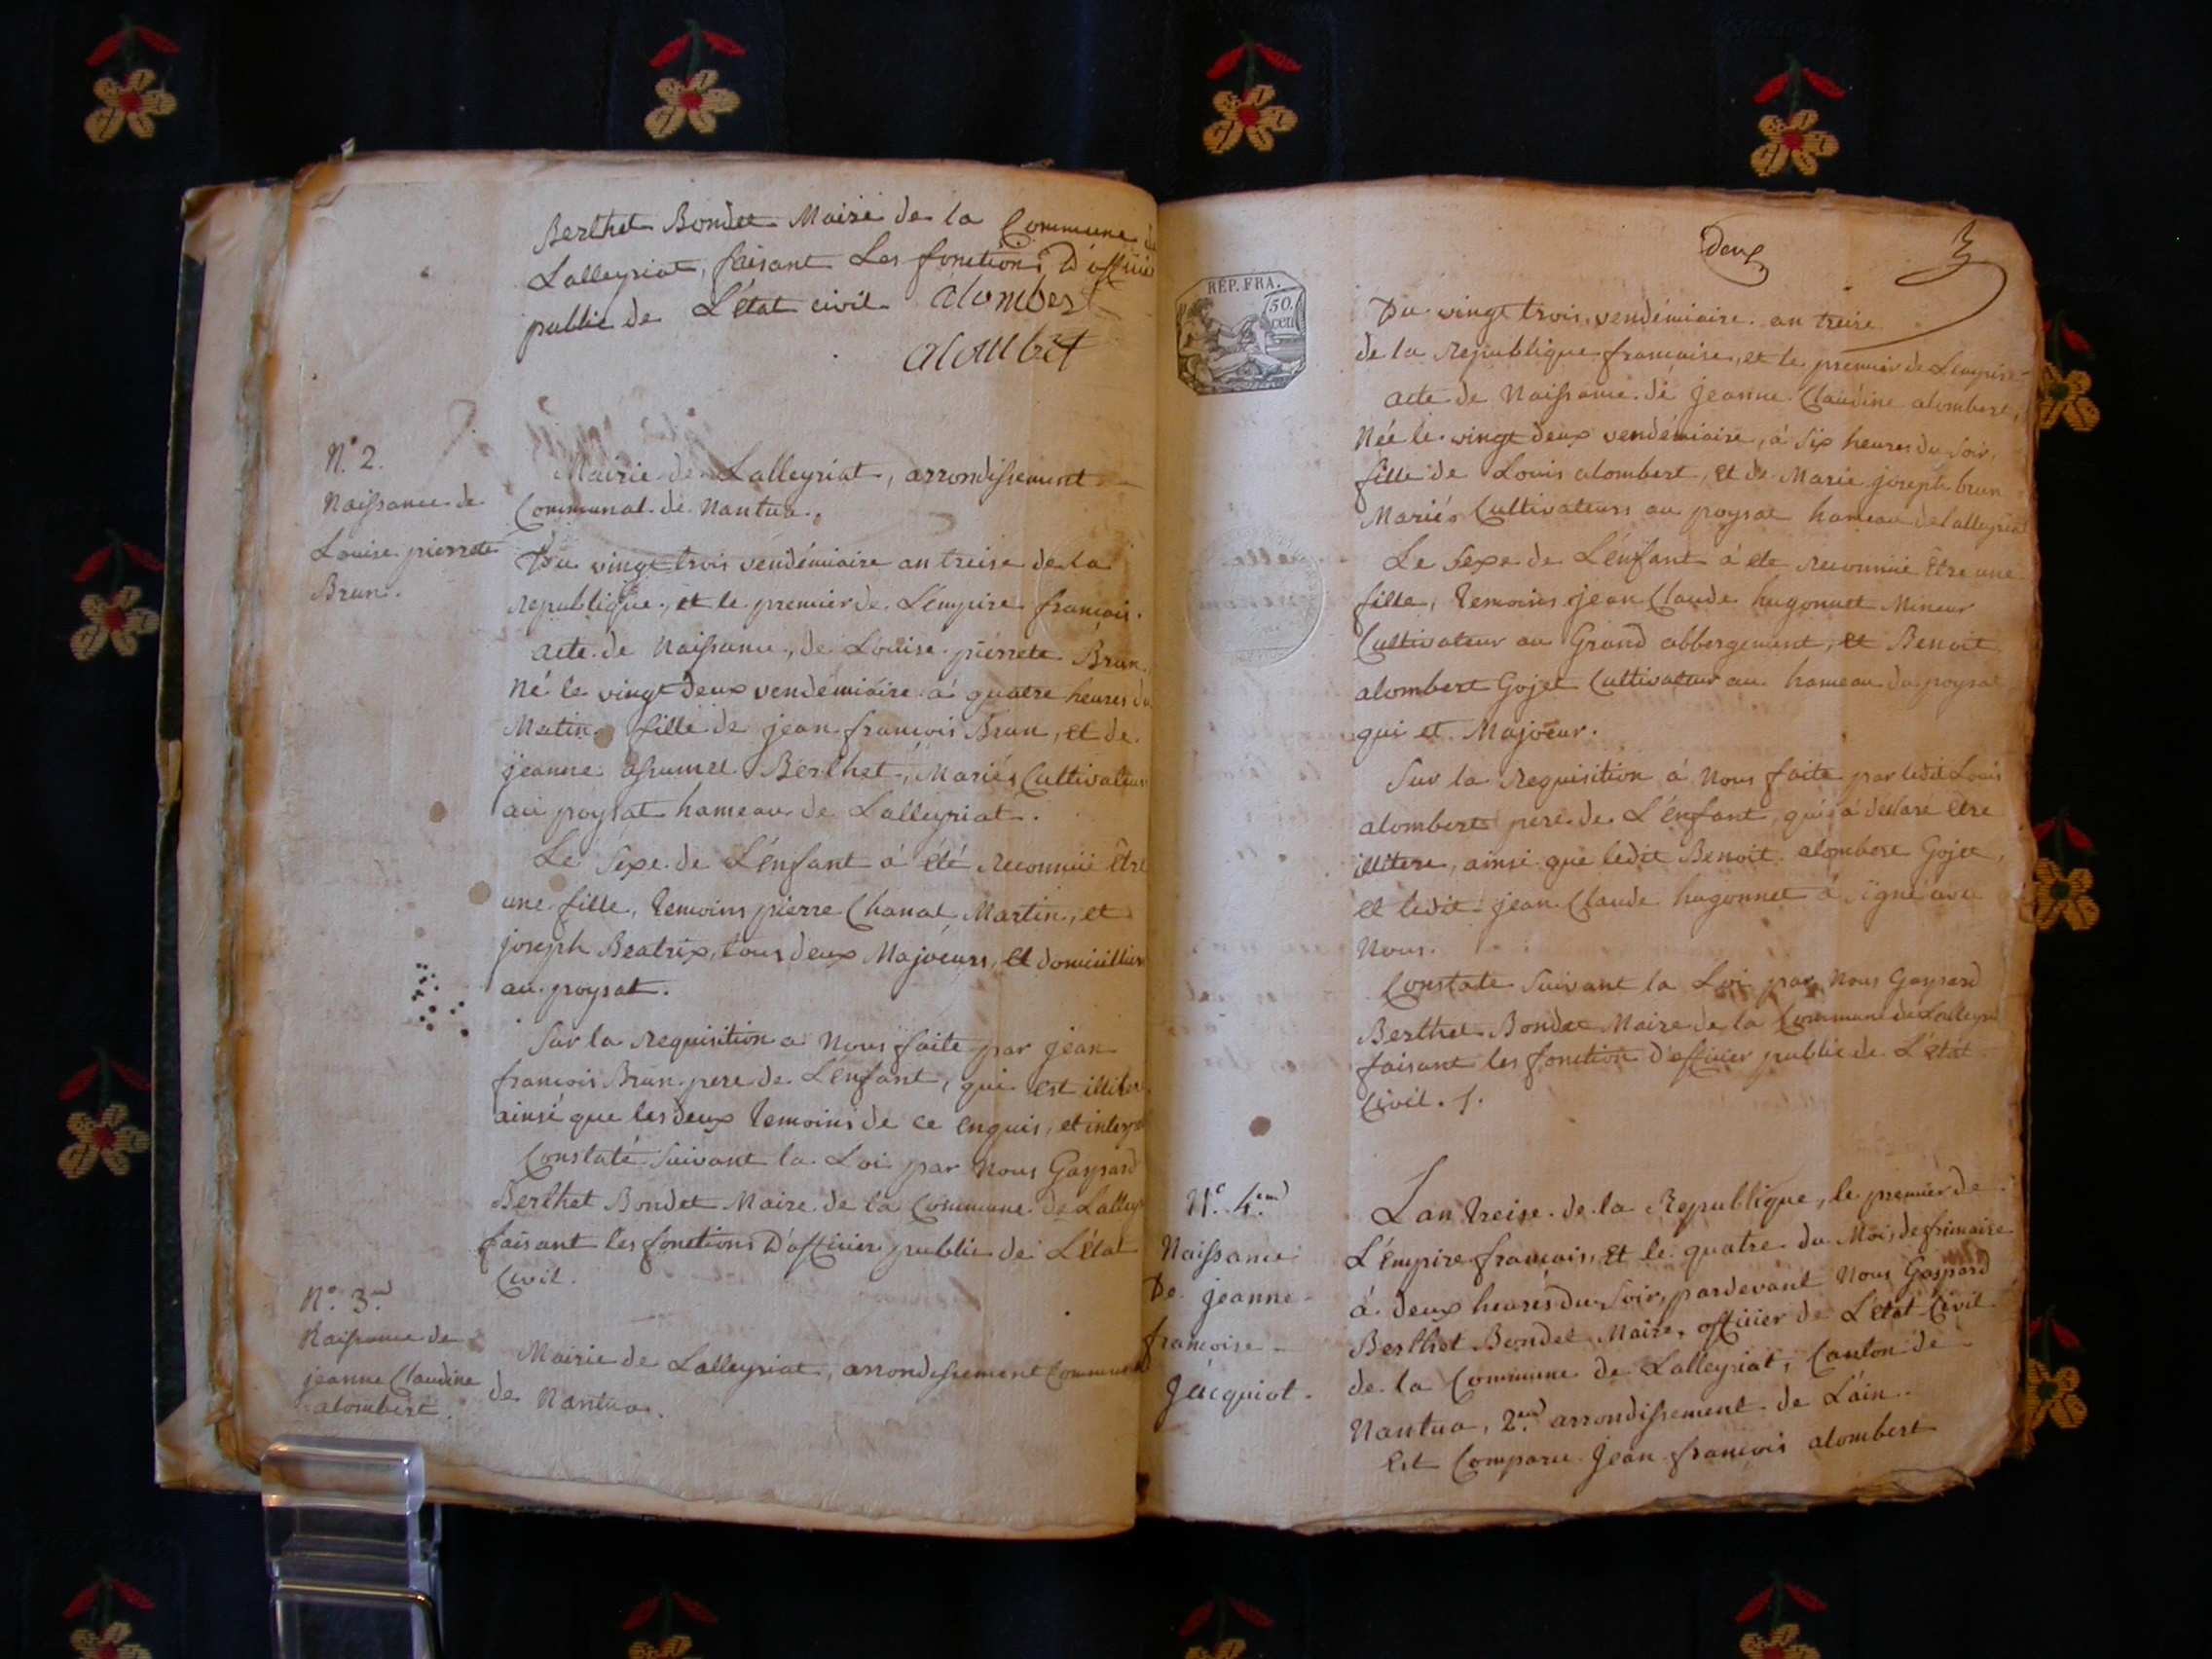 Berthet Bondet Maire de la Commune de
Lalleyriat, faisant Les fonctions D'officier
public de L'état civil alombert
alombert
N.° 2.
Naissance de
Louise pierrete
Brun.
Mairie de Lalleyriat, arrondissement
Communal de Nantua.
Du vingt trois vendémiaire an treise de la
Republique, et le premier de L'empire françois.
acte de Naissance, de Louise pierrete Brun
Né le vingt deux vendémiaire à quatre heures du
Matin fille de jean françois Brun, et de
jeanne Berthet, Mariés Cultivateurs
au poysat hameau de Lalleyriat.
Le Sexe de L'enfant à été reconnüe Etre
une fille, temoins pierre Chanal Martin, et
joseph Beatrix, tous deux Majoeurs, et domicilliés
au poysat.
Sur la Requisition a Nous faite par jean
françois Brun pere de L'enfant, qui est illitere
ainsi que les deux temoins de ce enquis, et interp
Constaté Suivant la Loi par Nous Gaspard
Berthet Bondet Maire de la Commune de Lalley
faisant les fonctions D'officier public de L'état
Civil.
N.° 3.
Naissance de
jeanne Claudine
alombert.
Mairie de Lalleyriat, arrondissement Communal
de Nantua.
deux
3
REP. FRA.
50.
cen
Du vingt trois vendémiaire an treise
de la Republique francaise, et le premier de L'empire
acte de Naissance de jeanne Claudine alombert,
Née le vingt deux vendémiaire, à Six heures du Soir,
fille de Louis alombert, et de Marie joseph brun
Mariés Cultivateurs au poysat hameau de lalleyriat
Le Sexe de L'enfant à ete reconnüe Etre une
fille, temoins jean Claude hugonnet Mineur
Cultivateur au Grand abbergement, et Benoit
alombert Gojet Cultivateur au hameau du poysat
qui et Majoeur.
Sur la Requisition à Nous faite par ledit Louis
alombert pere de L'enfant, qui à declaré etre
illitere, ainsi que ledit Benoit alombert Gojet,
et ledit jean Claude hugonnet à Signé avec
Nous.
Constate Suivant la Loi par Nous Gaspard
Berthet Bondet Maire de la Commune de Lalleyriat
faisant les fonction D'officier public de L'état
Civil. /.
N.° 4.em
Naissance
De jeanne
françoise
Jacquiot.
Lan treise de la Republique, le premier de
L'empire françois, et le quatre du Mois de frimaire
à deux heures du Soir, pardevant Nous Gaspard
Berthet Bondet Maire, officier de L'état Civil
de la Commune de Lalleyriat, Canton de
Nantua, 2.em arrondissement de L'ain.
Est Comparu Jean françois alombert